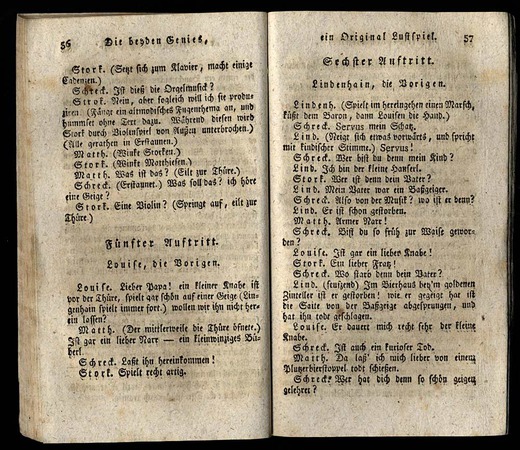 56 Die beyden Genies,
Stork. (Setzt sich zum Klavier, macht einige
Cadenzen.)
Schreck. Ist dieß die Orgelmusick?
Stork. Nein, aber sogleich will ich sie produ-
ziren. (Fängt ein altmodisches Fugenthema an, und
hummset ohne Text dazu. Während diesen wird
Stork durch Violonspiel von Außen unterbrochen.)
(Alle gerathen in Erstaunen.)
Matth. (Winkt Storken.)
Stork. (Winkt Matthiesen.)
Matth. Was ist das? (Eilt zur Thüre.)
Schreck. (Erstaunet.) Was soll das? ich höre
eine Geige?
Stork. Eine Violin? (Springt auf, eilt zur
Thüre.)
Fünfter Auftritt.
Louise, die Vorigen.
Louise. Lieber Papa! ein kleiner Knabe ist
vor der Thüre, spielt gar schön auf einer Geige (Lin-
genhain spielt immer fort.) wollen wir ihn nicht her-
ein lassen?
Matth. (Der mittlerweile die Thüre öfnete.)
Ist gar ein lieber Narr — ein kleinwinziges Bü-
herl.
Schreck. Laßt ihn hereinkommen!
Stork. Spielt recht artig.
ein Original Lustspiel. 57
Sechster Auftritt.
Lindenhain, die Vorigen.
Lindenh. (Spielt im hereingehen einen Marsch,
küßt dem Baron, dann Louisen die Hand.)
Schreck. Servus mein Schatz.
Lind. (Neigt sich etwas vorwärts, und spricht
mit kindischer Stimme.) Servus!
Schreck. Wer bist du denn mein Kind?
Lind. Ich bin der kleine Hanserl.
Stork. Wer ist denn dein Vater?
Lind. Mein Vater war ein Baßgeiger.
Schreck. Also von der Musik? wo ist er denn?
Lind. Er ist schon gestorben.
Matth. Armer Narr!
Schreck. Bist du so früh zur Waise gewor-
den?
Louise. Ist gar ein lieber Knabe!
Stork. Ein lieber Fratz!
Schreck. Wo starb denn dein Vater?
Lind. (seufzend) Im Bierhaus bey'm goldenen
Zinteller ist er gestorben! wie er gegeigt hat ist
die Saite von der Baßgeige abgesprungen, und
hat ihn todt geschlagen.
Louise. Er dauert mich recht sehr der kleine
Knabe.
Schreck. Ist auch ein kurioser Tod.
Matth. Da laß' ich mich lieber von einem
Plutzerbierstoppel todt schießen.
Schreck. Wer hat dich denn so schön geigen
gelehret?